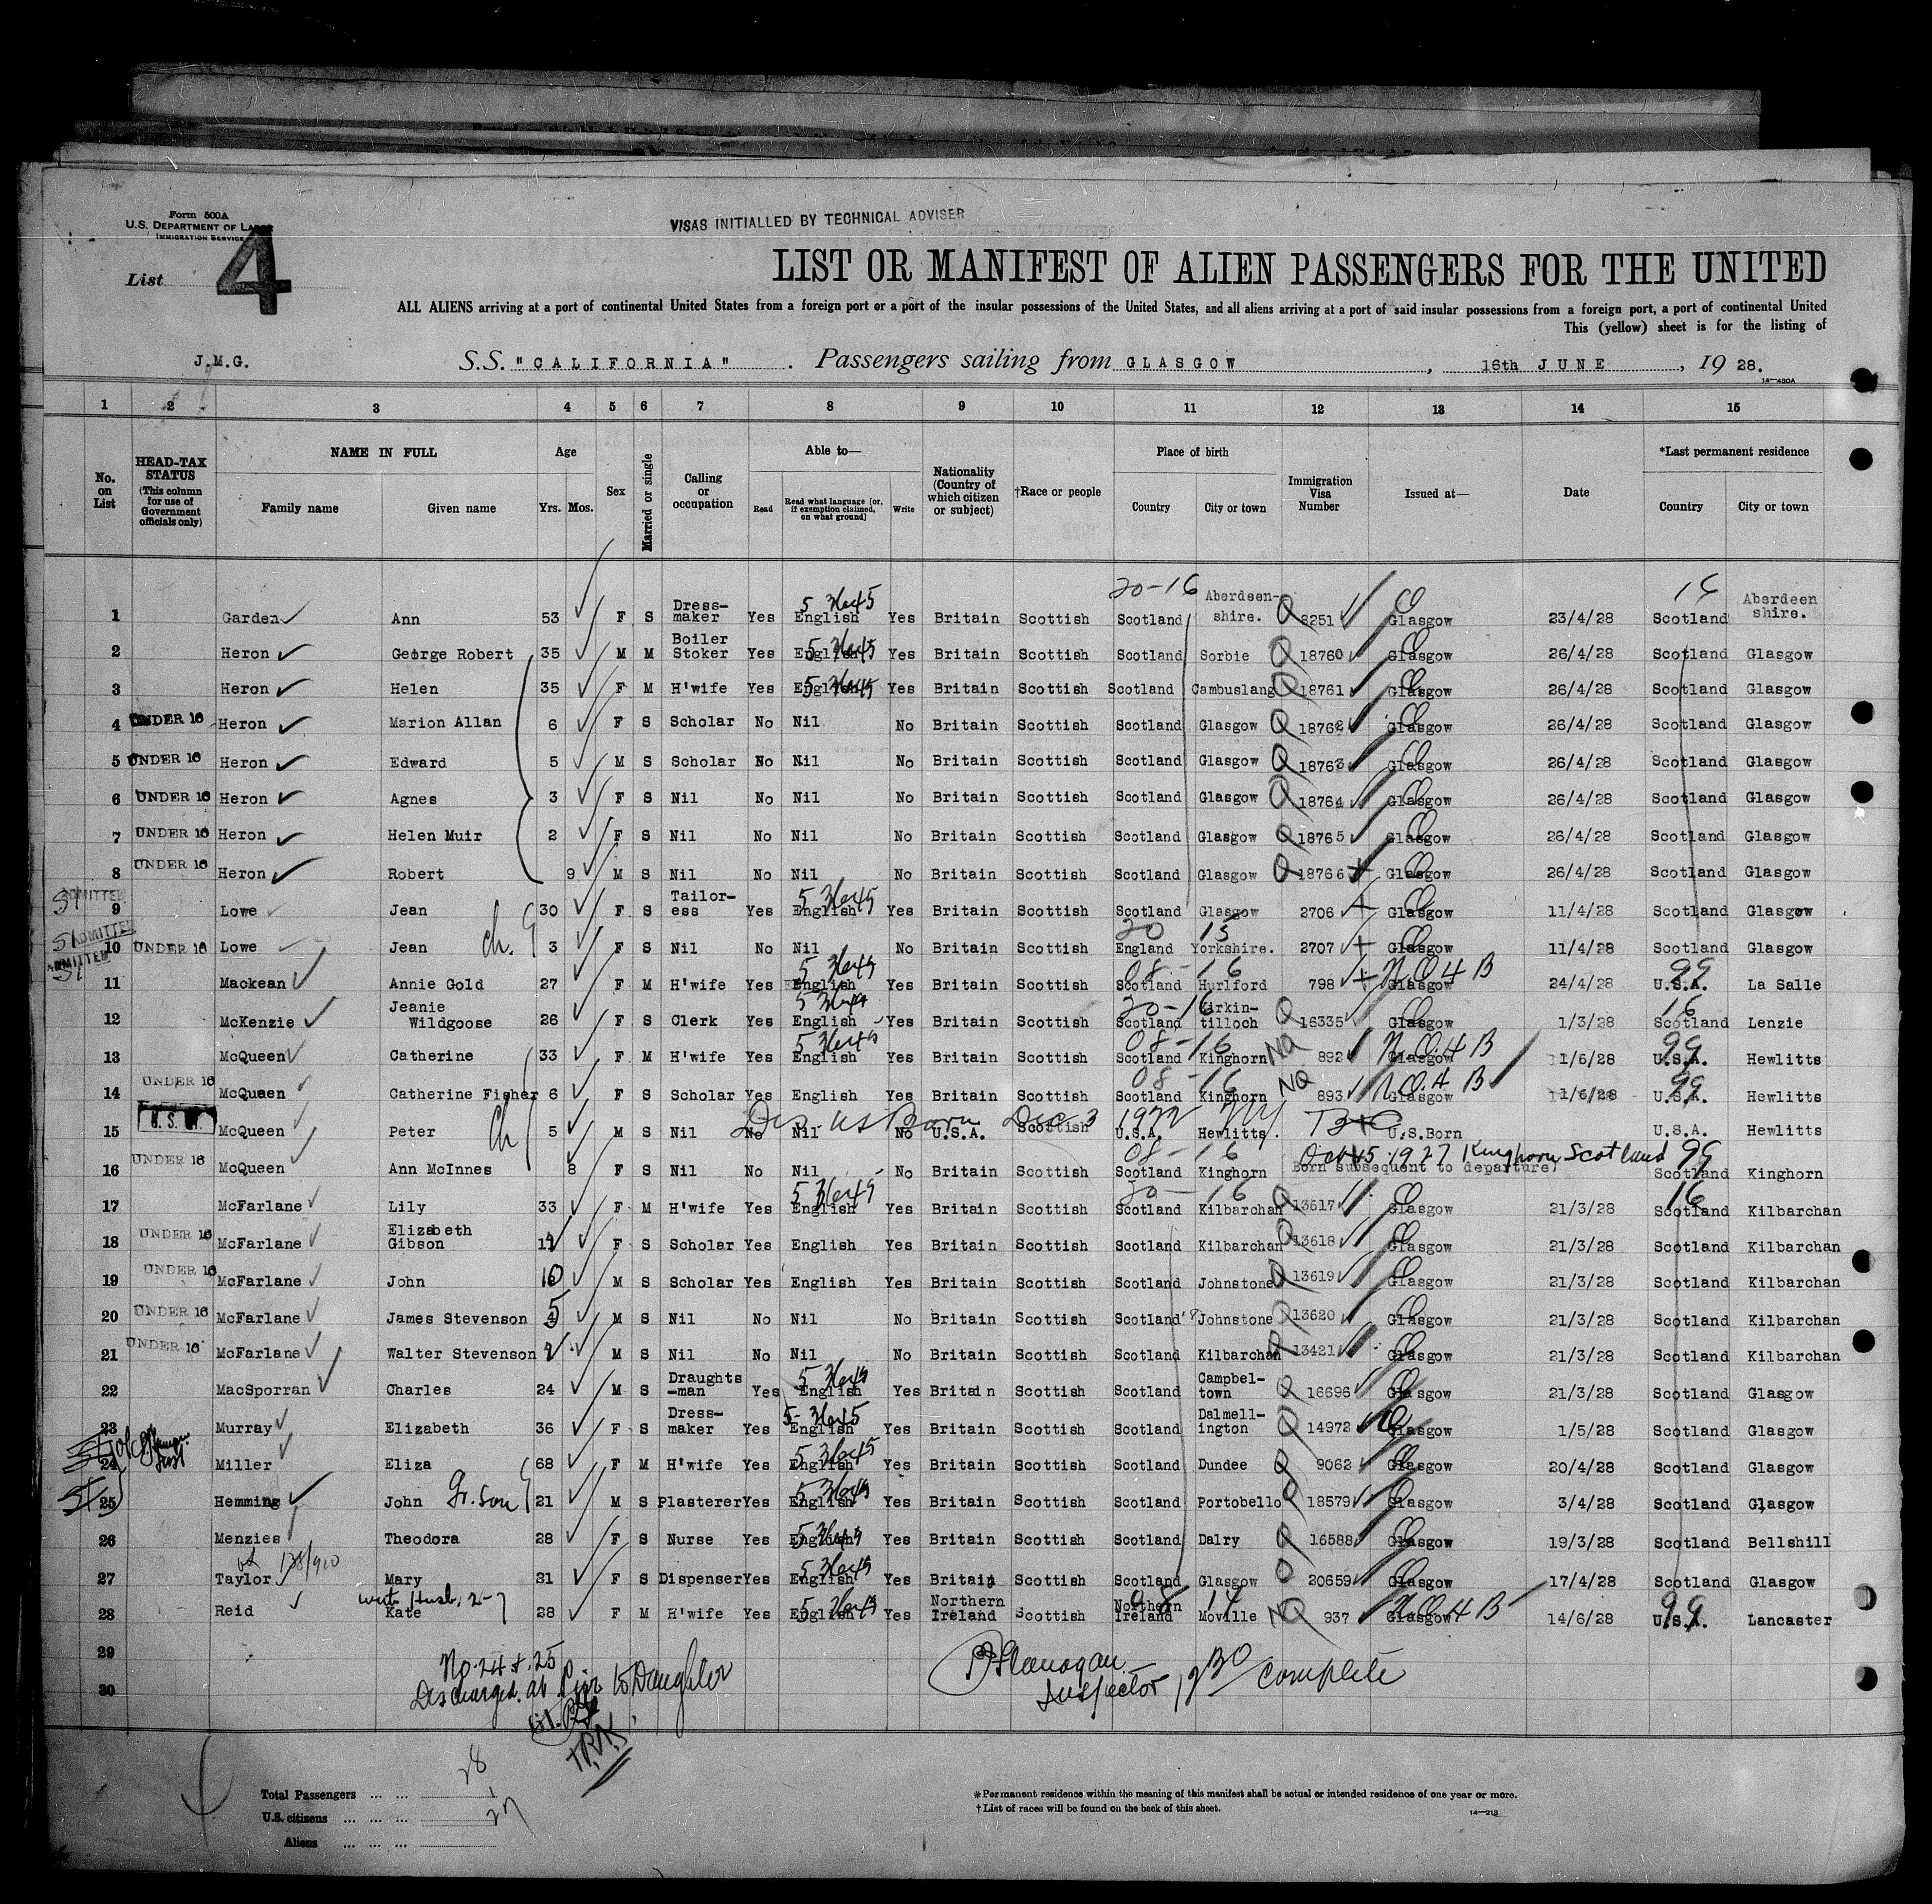 Form 500A
U.S. DEPARTMENT OF LABOR
IMMIGRATION SERVICE
VISAS INITIALLED BY TECHNICAL ADVISER
List 4
LIST OR MANIFEST OF ALIEN PASSENGERS FOR THE UNITED
ALL ALIENS arriving at a port of continental United States from a foreign port or a port of the insular possessions of the United States, and all aliens arriving at a port of said insular possessions from a foreign port, a port of continental United
This (yellow) sheet is for the listing of
J.M.G. S.S. "CALIFORNIA". Passengers sailing from GLASGOW, 16th JUNE, 1928.
14—430A
1 2 3 4 5 6 7 8 9 10 11 12 13 14 15
No. on List
HEAD-TAX STATUS (This column for use of Government officials only)
NAME IN FULL Family name Given name
Age Yrs. Mos.
Sex
Married or single
Calling or occupation
Able to— Read Read what language [or, if exemption claimed, on what ground] Write
Nationality (Country of which citizen or subject)
†Race or people
Place of birth Country City or town
Immigration Visa Number
Issued at—
Date
*Last permanent residence Country City or town
20-16 16
1 Garden Ann 53 F S Dress-maker Yes English Yes Britain Scottish Scotland Aberdeen-shire. 2251 Glasgow 23/4/28 Scotland Aberdeen shire.
2 Heron George Robert 35 M M Boiler Stoker Yes English Yes Britain Scottish Scotland Sorbie Q 18760 Glasgow 26/4/28 Scotland Glasgow
3 Heron Helen 35 F M H'wife Yes English Yes Britain Scottish Scotland Cambuslang Q 18761 Glasgow 26/4/28 Scotland Glasgow
4 UNDER 16 Heron Marion Allan 6 F S Scholar No Nil No Britain Scottish Scotland Glasgow Q 18762 Glasgow 26/4/28 Scotland Glasgow
5 UNDER 16 Heron Edward 5 M S Scholar No Nil No Britain Scottish Scotland Glasgow Q 18763 Glasgow 26/4/28 Scotland Glasgow
6 UNDER 16 Heron Agnes 3 F S Nil No Nil No Britain Scottish Scotland Glasgow Q 18764 Glasgow 26/4/28 Scotland Glasgow
7 UNDER 16 Heron Helen Muir 2 F S Nil No Nil No Britain Scottish Scotland Glasgow Q 18765 Glasgow 26/4/28 Scotland Glasgow
8 UNDER 16 Heron Robert 9 M S Nil No Nil No Britain Scottish Scotland Glasgow Q 18766 Glasgow 26/4/28 Scotland Glasgow
ADMITTED
9 Lowe Jean 30 F S Tailor-ess Yes English Yes Britain Scottish Scotland Glasgow 2706 Glasgow 11/4/28 Scotland Glasgow
ADMITTED 20 15
10 UNDER 16 Lowe Jean ch. 3 F S Nil No Nil No Britain Scottish England Yorkshire. 2707 Glasgow 11/4/28 Scotland Glasgow
ADMITTED 08-16 99
11 Mackean Annie Gold 27 F M H'wife Yes English Yes Britain Scottish Scotland Hurlford 798 Glasgow 24/4/28 U.S.A. La Salle
20-16 16
12 McKenzie Jeanie Wildgoose 26 F S Clerk Yes English Yes Britain Scottish Scotland Kirkin-tilloch Q 16335 Glasgow 1/3/28 Scotland Lenzie
08-16 99
13 McQueen Catherine 33 F M H'wife Yes English Yes Britain Scottish Scotland Kinghorn NQ 892 Glasgow 11/6/28 U.S.A. Hewlitts
08-16 99
14 UNDER 16 McQueen Catherine Fisher 6 F S Scholar Yes English Yes Britain Scottish Scotland Kinghorn NQ 893 Glasgow 11/6/28 U.S.A. Hewlitts
Dec 3 1922 NY
15 McQueen Peter ch 5 M S Nil No Nil No U.S.A. Scottish U.S.A. Hewlitts. U.S.Born U.S.A. Hewlitts
08-16 Oct 5 1927 Kinghorn Scotland 99
16 UNDER 16 McQueen Ann McInnes 8 F S Nil No Nil No Britain Scottish Scotland Kinghorn Born subsequent to departure Scotland Kinghorn
20-16 16
17 McFarlane Lily 33 F M H'wife Yes English Yes Britain Scottish Scotland Kilbarchan Q 13617 Glasgow 21/3/28 Scotland Kilbarchan
18 UNDER 16 McFarlane Elizabeth Gibson F S Scholar Yes English Yes Britain Scottish Scotland Kilbarchan Q 13618 Glasgow 21/3/28 Scotland Kilbarchan
19 UNDER 16 McFarlane John 10 M S Scholar Yes English Yes Britain Scottish Scotland Johnstone Q 13619 Glasgow 21/3/28 Scotland Kilbarchan
20 UNDER 16 McFarlane James Stevenson 5 M S Nil No Nil No Britain Scottish Scotland Johnstone Q 13620 Glasgow 21/3/28 Scotland Kilbarchan
21 UNDER 16 McFarlane Walter Stevenson 2 M S Nil No Nil No Britain Scottish Scotland Kilbarchan 13421 Glasgow 21/3/28 Scotland Kilbarchan
22 MacSporran Charles 24 M S Draughts-man Yes English Yes Britain Scottish Scotland Campbel-town Q 16696 Glasgow 21/3/28 Scotland Glasgow
23 Murray Elizabeth 36 F S Dress-maker Yes English Yes Britain Scottish Scotland Dalmell-ington Q 14972 Glasgow 1/5/28 Scotland Glasgow
24 Miller Eliza 68 F M H'wife Yes English Yes Britain Scottish Scotland Dundee Q 9062 Glasgow 20/4/28 Scotland Glasgow
25 Hemming John Gr. Son 21 M S Plasterer Yes English Yes Britain Scottish Scotland Portobello Q 18579 Glasgow 3/4/28 Scotland Glasgow
26 Menzies Theodora 28 F S Nurse Yes English Yes Britain Scottish Scotland Dalry Q 16588 Glasgow 19/3/28 Scotland Bellshill
27 Taylor Mary 31 F S Dispenser Yes English Yes Britain Scottish Scotland Glasgow Q 20659 Glasgow 17/4/28 Scotland Glasgow
08 14 99
28 Reid Kate 28 F M H'wife Yes English Yes Northern Ireland Scottish Northern Ireland Moville NQ 937 Glasgow 14/6/28 U.S.A. Lancaster
29
30
No. 24 + 25
Discharged at Pier to Daughter
Flanagan
Inspector, complete
T.R.K.
Total Passengers 28
U.S. citizens 1
Aliens 27
*Permanent residence within the meaning of this manifest shall be actual or intended residence of one year or more.
†List of races will be found on the back of this sheet.
14—213